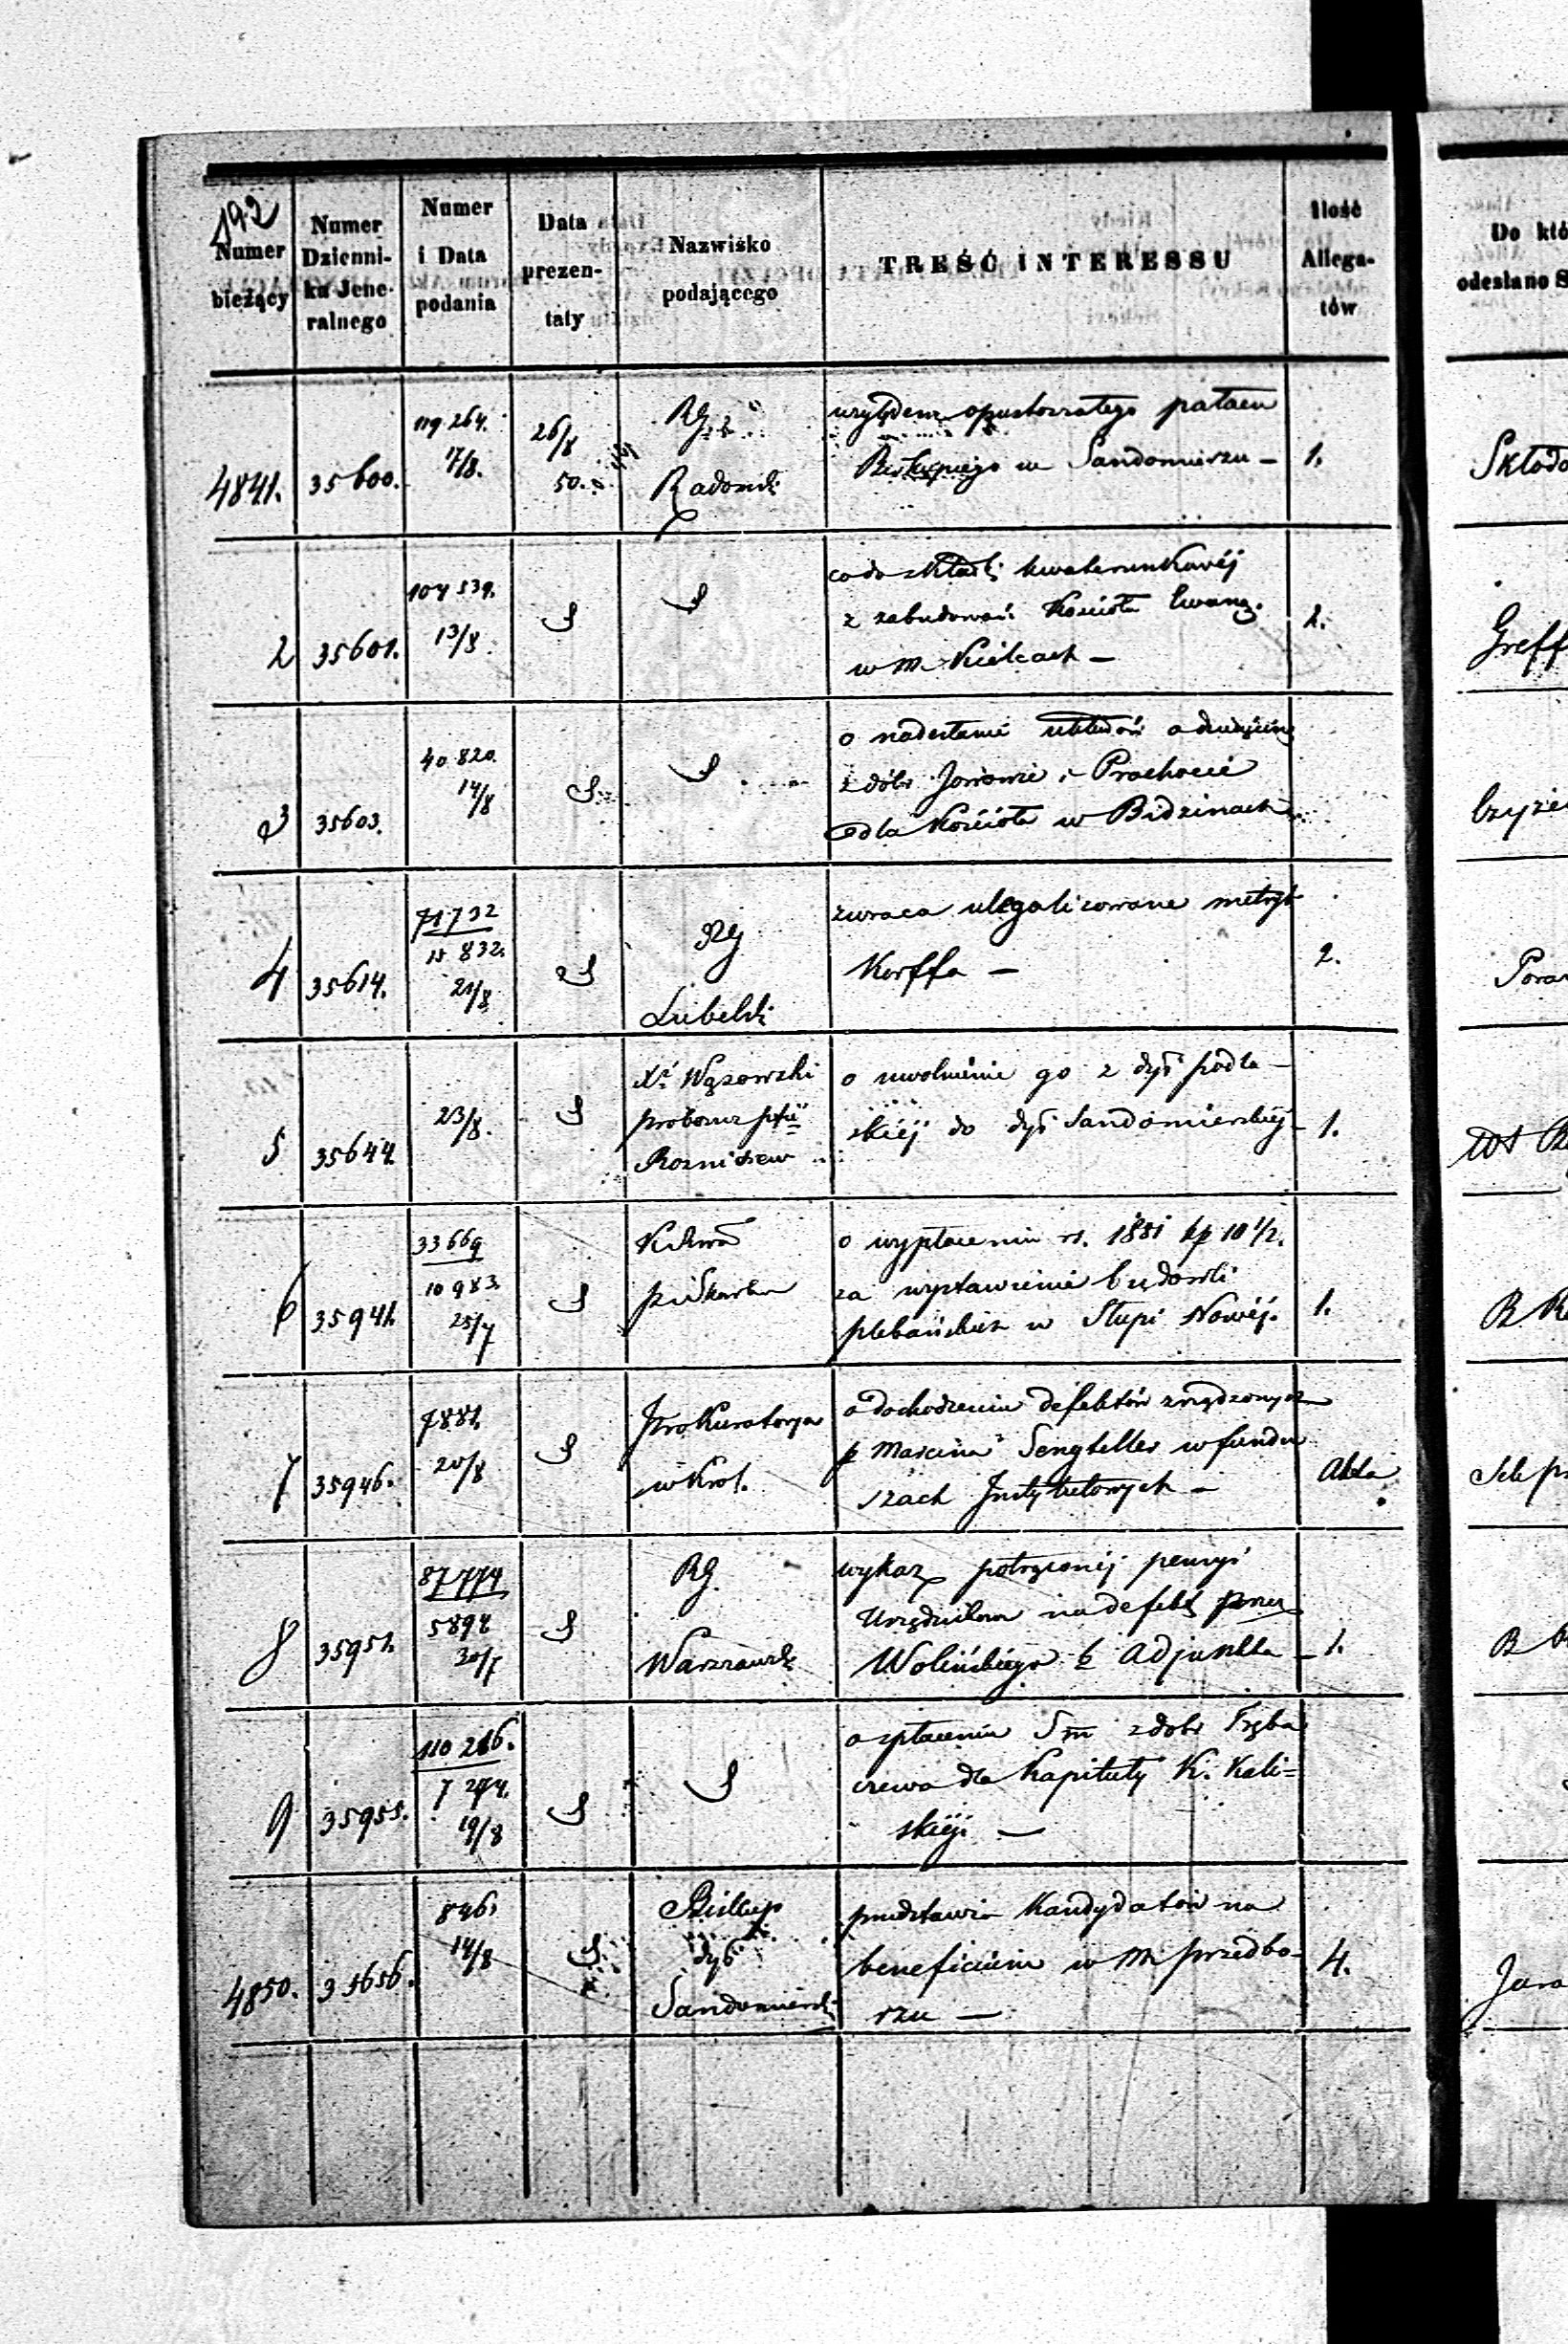 192
Numer bieżący
Numer Dzienni- ka Jene- ralnego
Numer i Data podania
Data prezen- taty
Nazwisko podającego
TREŚĆ INTERESSU
Ilość Allega- tów
Do któ
odesłano S
4841. 35600. 119264. 17/8. 26/8 50. RG Radomski
względem opustoszałego pałacu
Biskupiego w Sandomierzu – 1.
Skłodo
2 35601. 104539. 13/8.
co do składki kwaterunkowéj
z zabudowań Kościoła Ewang.
w m. Kielcach – 2.
Greff
3 35603. 40820. 14/8
o nadesłanie układów o dziesięcinę
z dóbr i Prochocie
dla Kościoła w Bidzinach
Czyże
4 35614. 71732 15832. 21/8 RG Lubelski
zwraca ulegalizowane metryk
Korffa – 2.
5 35644. 23/8. Xs. Wąsowski
proboszcz
Rozniszew
o uwolnienie go z dyi podla-
skiéj do dyi Sandomierskiéj – 1.
6 35941. 33669 10983. 25/7
o wypłacenie rs. 1881 kp 10 1/2.
za wystawienie budowli
plebańskich w Słupi Nowéj. 1.
7 35946. 7881. 20/8 Prokuratorya
w Król.
o dochodzeniu defektów zrządzonych
p Marcina Sengteller w fundu
szach Instytutowych – Akta
8 35951. 87774 5892 30/7 RG. Warszawski
wykaz potrąconéj pensyi
Urzędnikom na defekt przez
Wolińskiego b Adjunkta – 1.
9 35955. 110216. 7274. 19/8
o spłaceniu Sm z dóbr
czewa dla Kapituły K. Kali=
skiéj –
4850. 35656. 846. 14/8 Biskup
dyi
Sandomierski
przedstawia Kandydatów na
beneficium w m przedbo-
rzu – 4.
Jaro